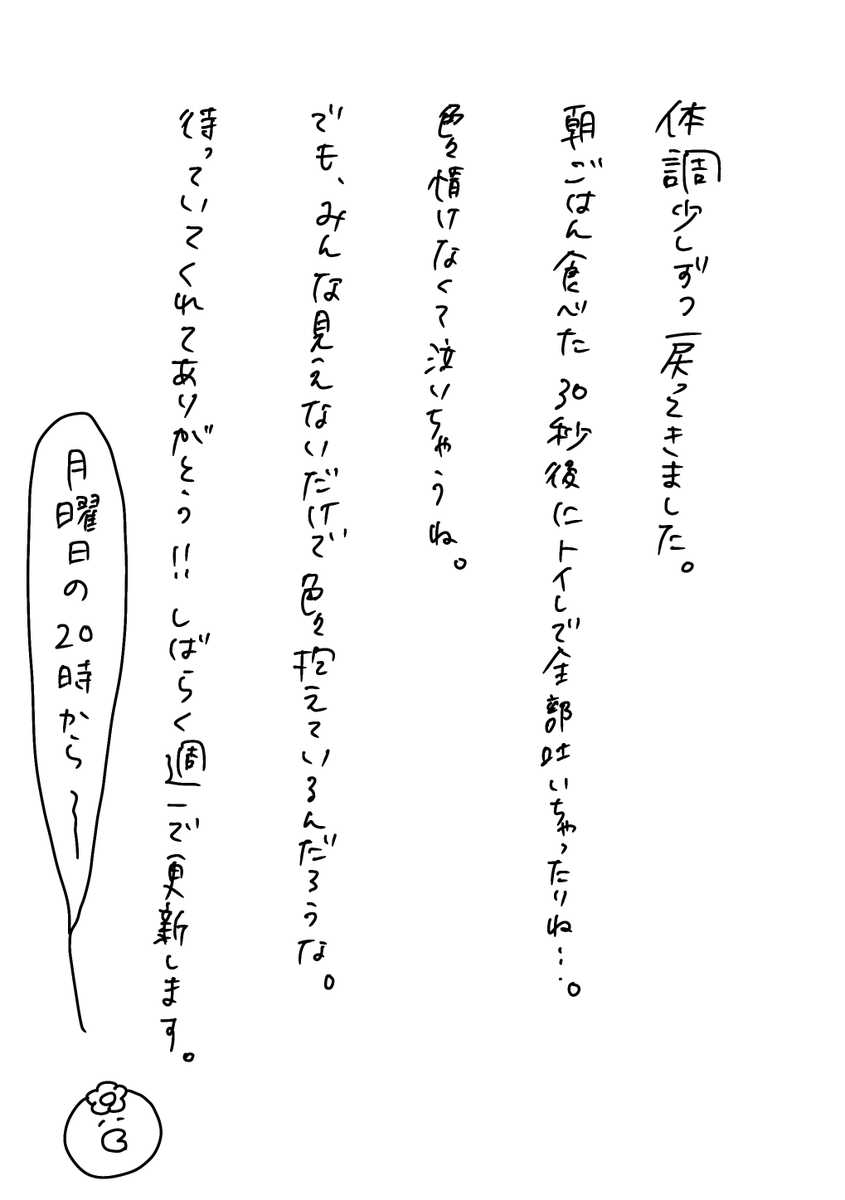 体調少しずつ戻ってきました。
朝ごはん食べた30秒後にトイレで全部吐いちゃったりね…。
色々情けなくて泣いちゃうね。
でも、みんな見えないだけで色々抱えているんだろうな。
待っていてくれてありがとう!!しばらく週一で更新します。
月曜日の20時から〜